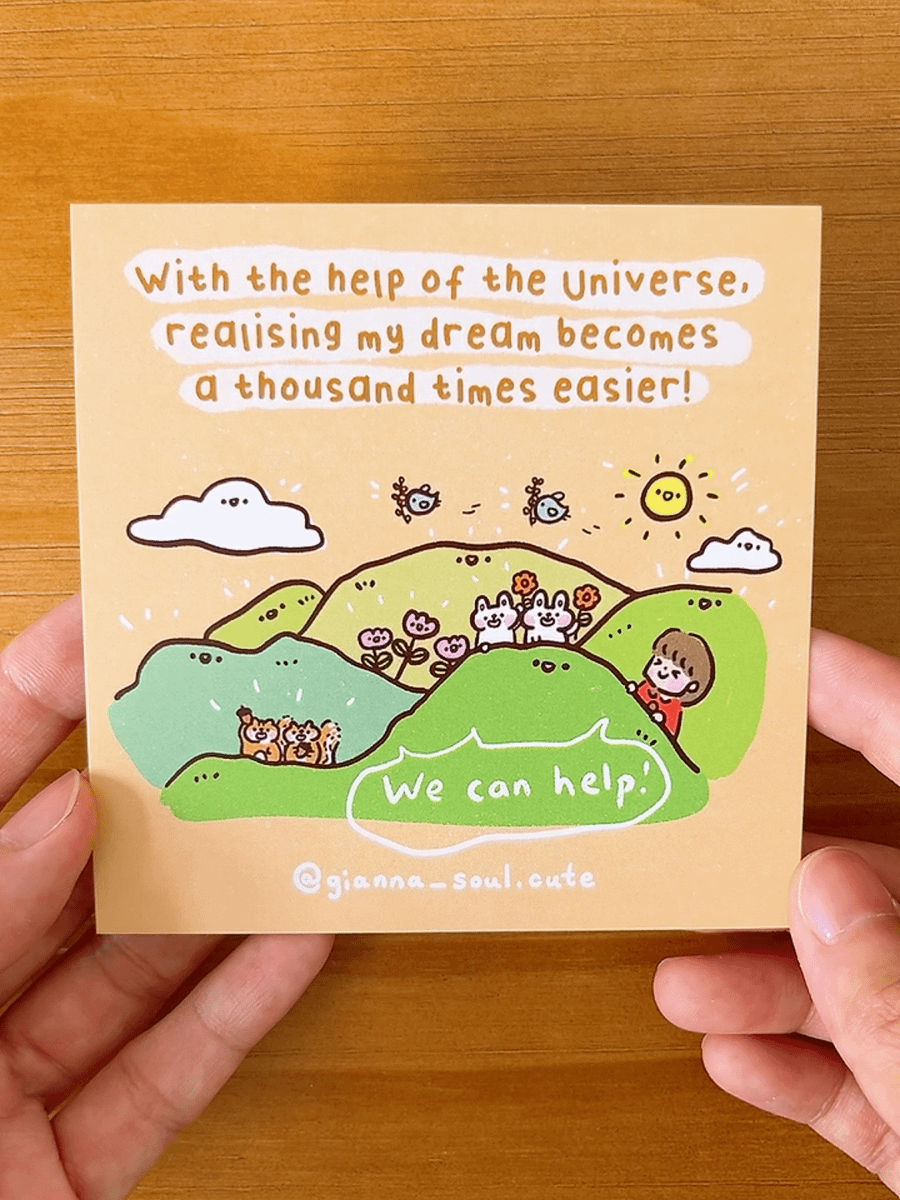 With the help of the Universe,
realising my dream becomes
a thousand times easier!
We can help!
@gianna_soul.cute